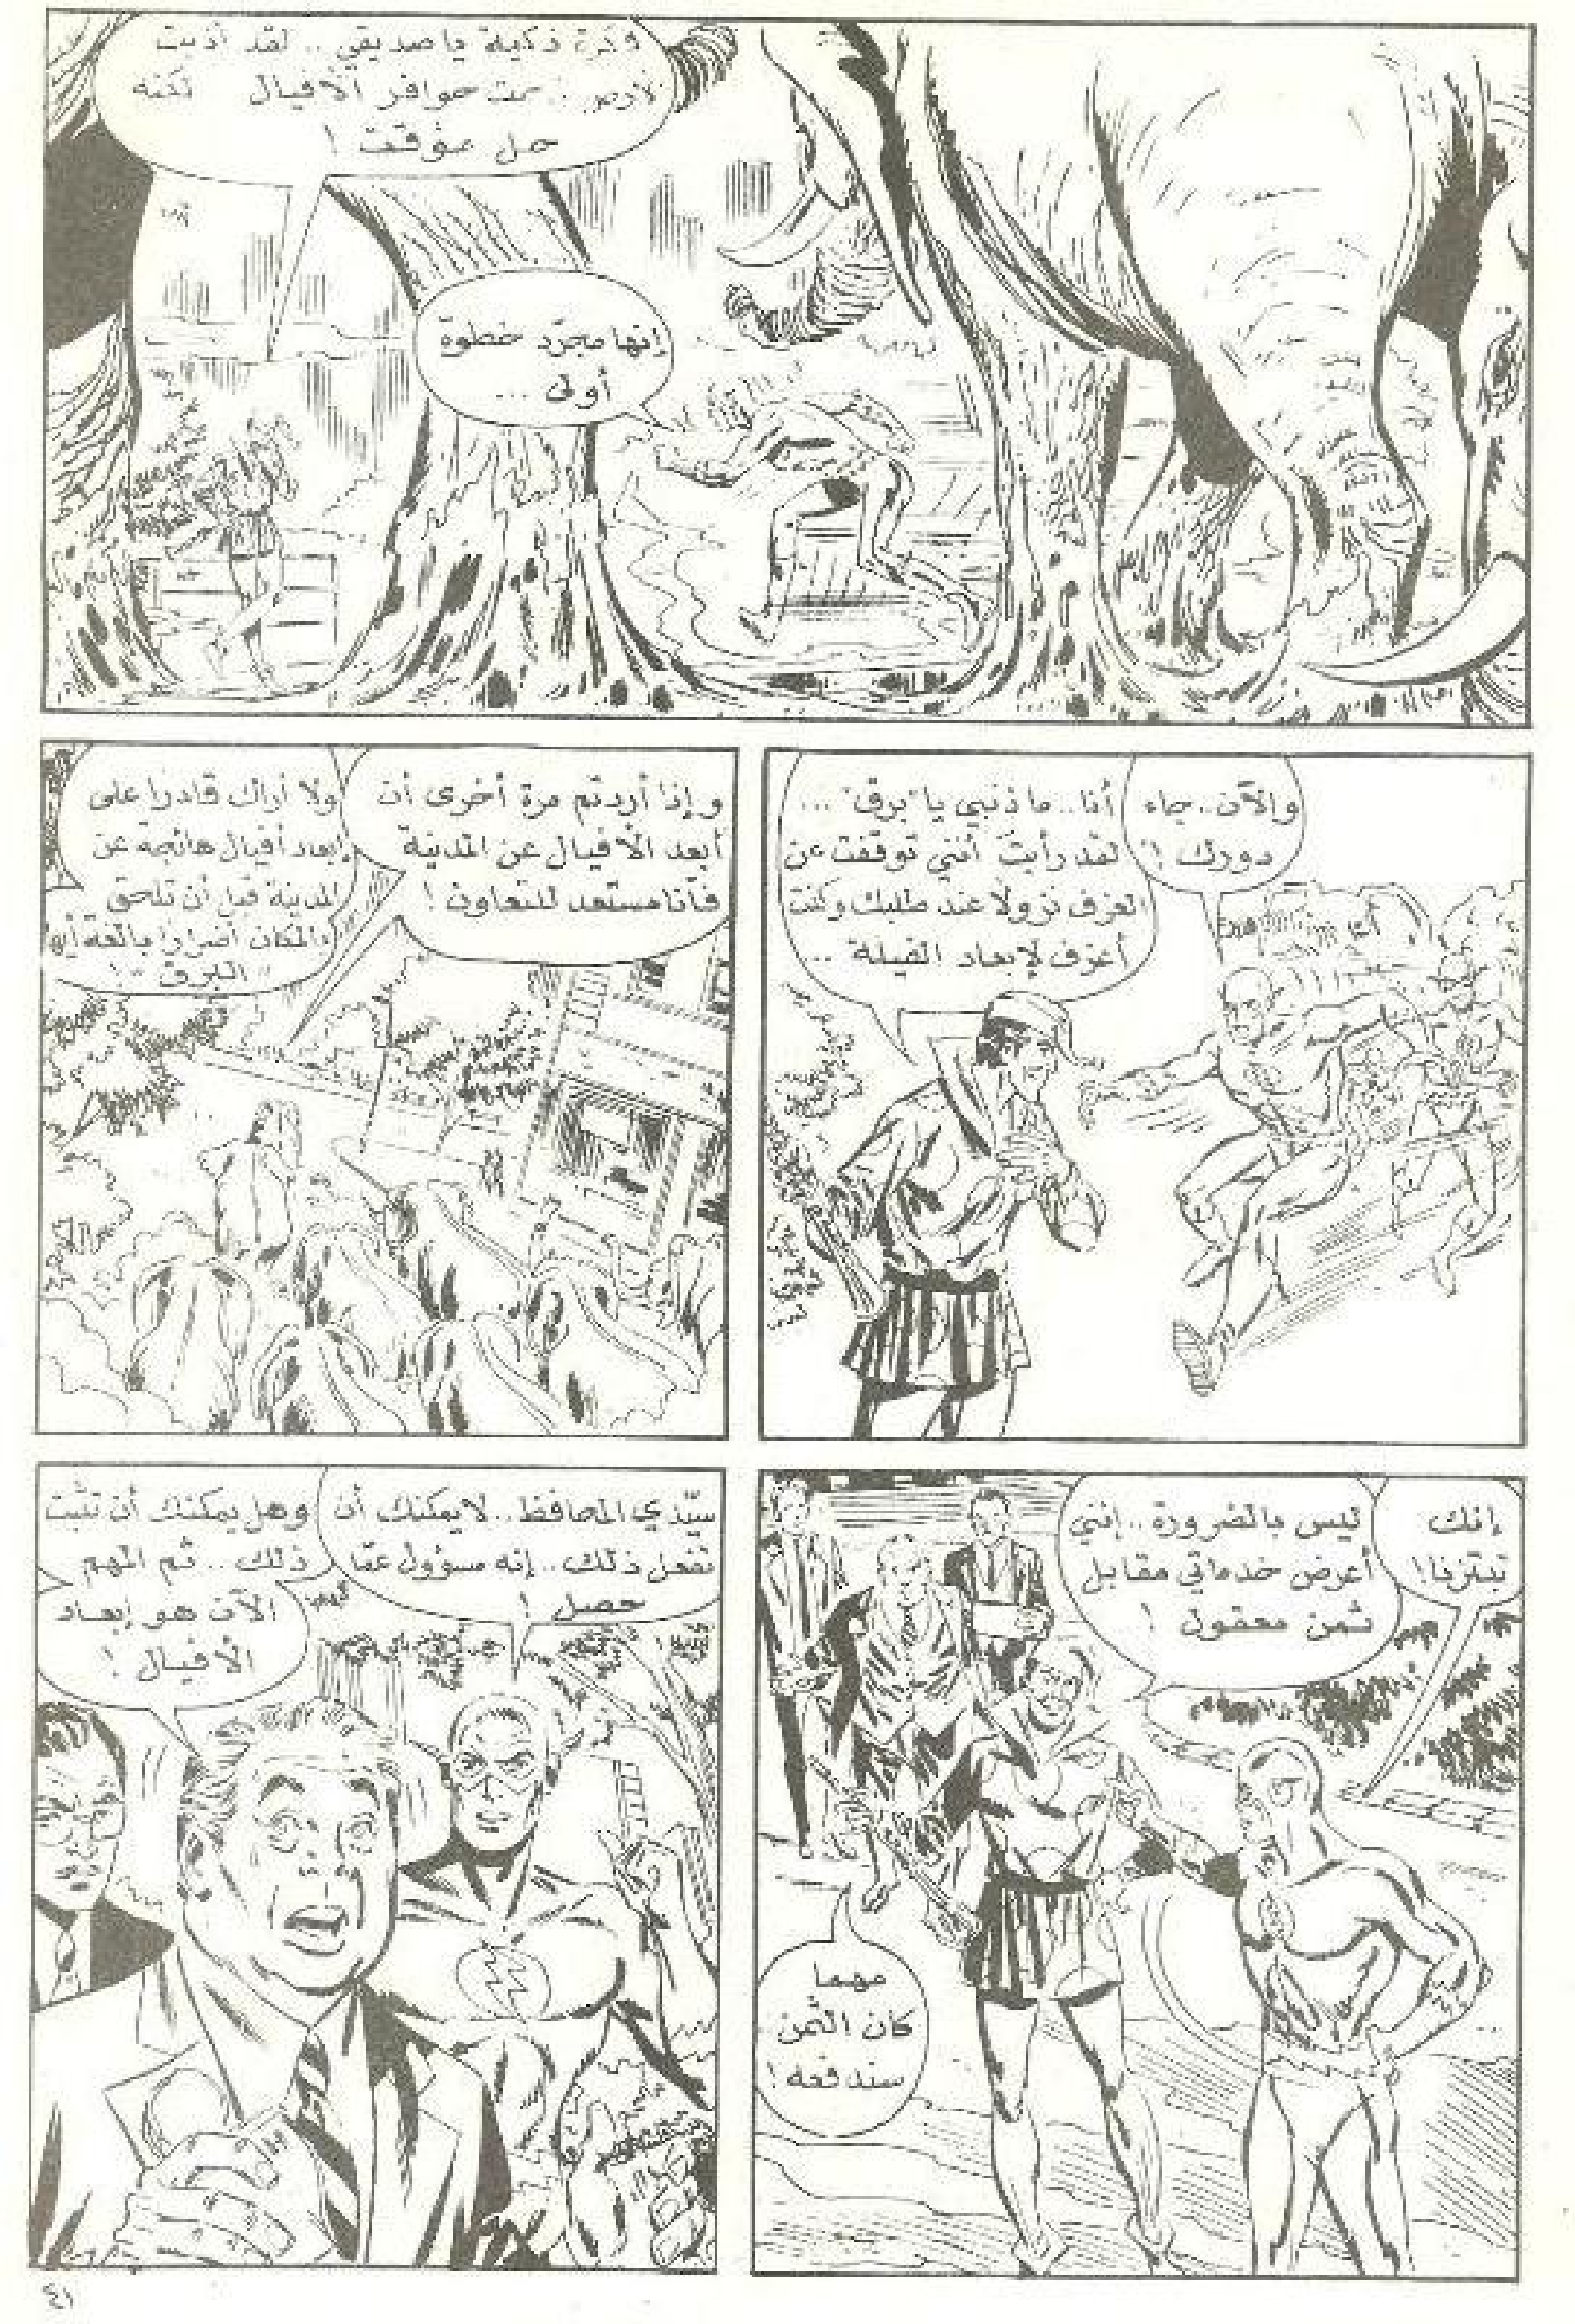 فكرة ذكية يا صديقي .. لقد أذبت
الأرض .. تحت حوافر الأفيال لكنه
حل مؤقت !
إنها مجرّد خطوة
أولى ...
والآن .. جاء
دورك !
أنا .. ما ذنبي يا "برق" ...
لقد رأيت أنني توقفت عن
العزف نزولا عند طلبك وكنت
أعزف لإبعاد الفيلة ...
وإذا أردتم مرة أخرى أن
أبعد الأفيال عن المدينة
فأنا مستعد للتعاون !
ولا أراك قادرا على
إبعاد أفيال هائجة عن
المدينة قبل أن تلحق
بالمكان أضرارا بالغة أيها
"البرق" !
إنك
تبتزنا !
ليس بالضرورة .. إنني
أعرض خدماتي مقابل
ثمن معقول !
مهما
كان الثمن
سندفعه !
سيّدي المحافظ .. لا يمكنك أن
تفعل ذلك .. إنه مسؤول عمّا
حصل !
وهل يمكنك أن تثبت
ذلك .. ثم المهم
الآن هو إبعاد
الأفيال !
٤١